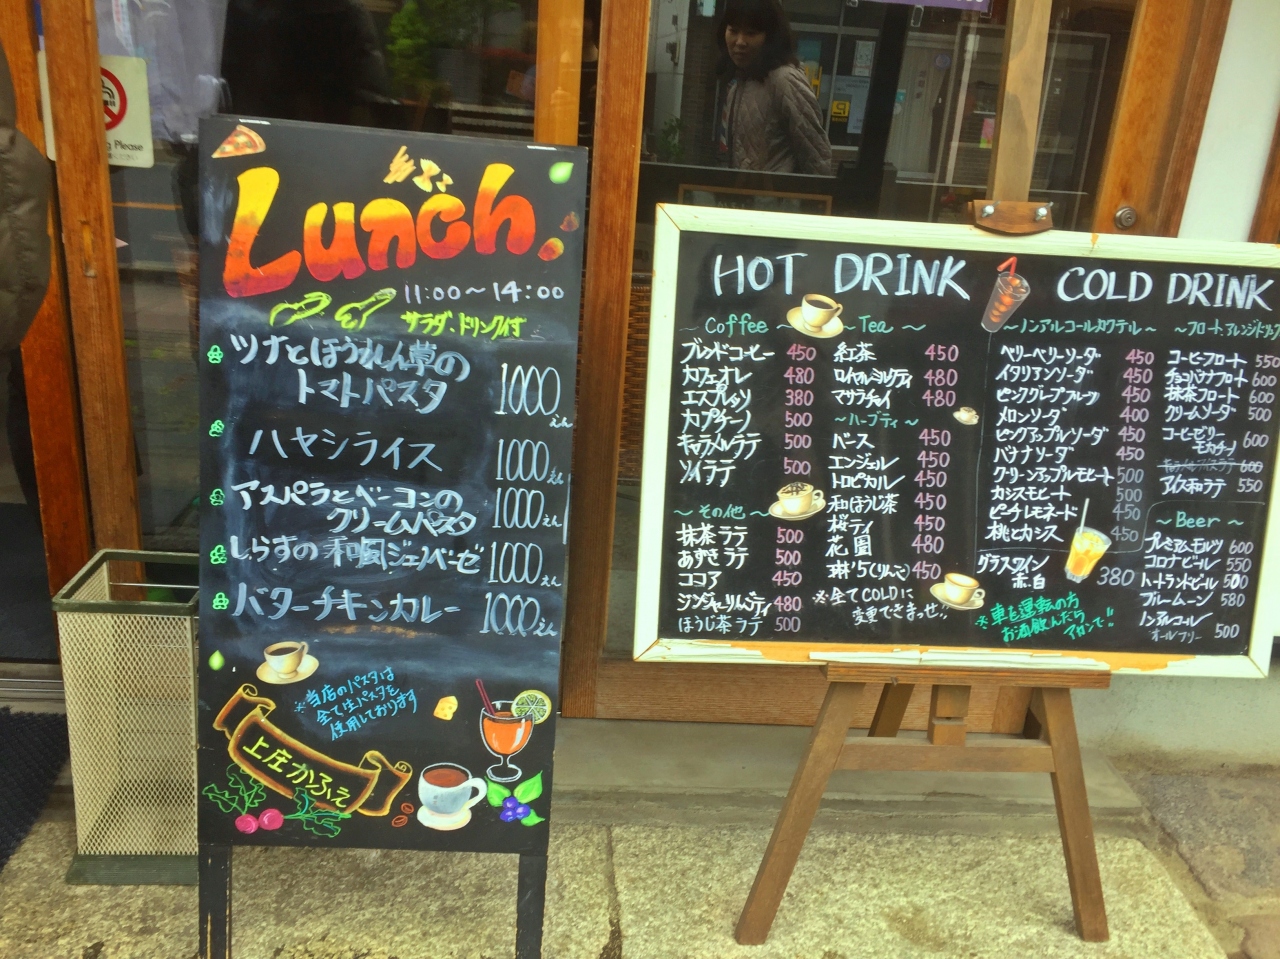 Lunch
11:00～14:00
サラダ、ドリンク付
ツナとほうれん草の
トマトパスタ 1000えん
ハヤシライス 1000えん
アスパラとベーコンの
クリームパスタ 1000えん
しらすの和風ジェノベーゼ 1000えん
バターチキンカレー 1000えん
※当店のパスタは
全て生パスタを
使用しております
上庄かふぇ
HOT DRINK
～Coffee～
ブレンドコーヒー 450
カフェオレ 480
エスプレッソ 380
カプチーノ 500
キャラメルラテ 500
ソイラテ 500
～その他～
抹茶ラテ 500
あずきラテ 500
ココア 450
ジンジャーりんごティ 480
ほうじ茶ラテ 500
～Tea～
紅茶 450
ロイヤルミルクティ 480
マサラチャイ 480
～ハーブティ～
バース 450
エンジェル 450
トロピカル 450
和ほうじ茶 450
桜ティ 450
花園 480
琳'5(りんご) 450
※全てCOLDに
変更できませっ!!
COLD DRINK
～ノンアルコールカクテル～
ベリーベリーソーダ 450
イタリアンソーダ 450
ピンクグレープフルーツ 450
メロンソーダ 400
ピンクアップルソーダ 450
バナナソーダ 450
グリーンアップルモヒート 500
カシスモヒート 500
ピーチレモネード 500
桃とカシス 450
グラスワイン
赤・白 380
※車を運転の方
お酒飲んだら
アカンで!!
～フロートアレンジドリンク
コーヒーフロート 550
チョコバナナフロート 600
抹茶フロート 600
クリームソーダ 500
コーヒーゼリー
モカチーノ 600
キャラメルアイスラテ 600
アイス和ラテ 550
～Beer～
プレミアムモルツ 600
コロナビール 550
ハートランドビール 500
ブルームーン 580
ノンアルコール
オールフリー 500
g Please